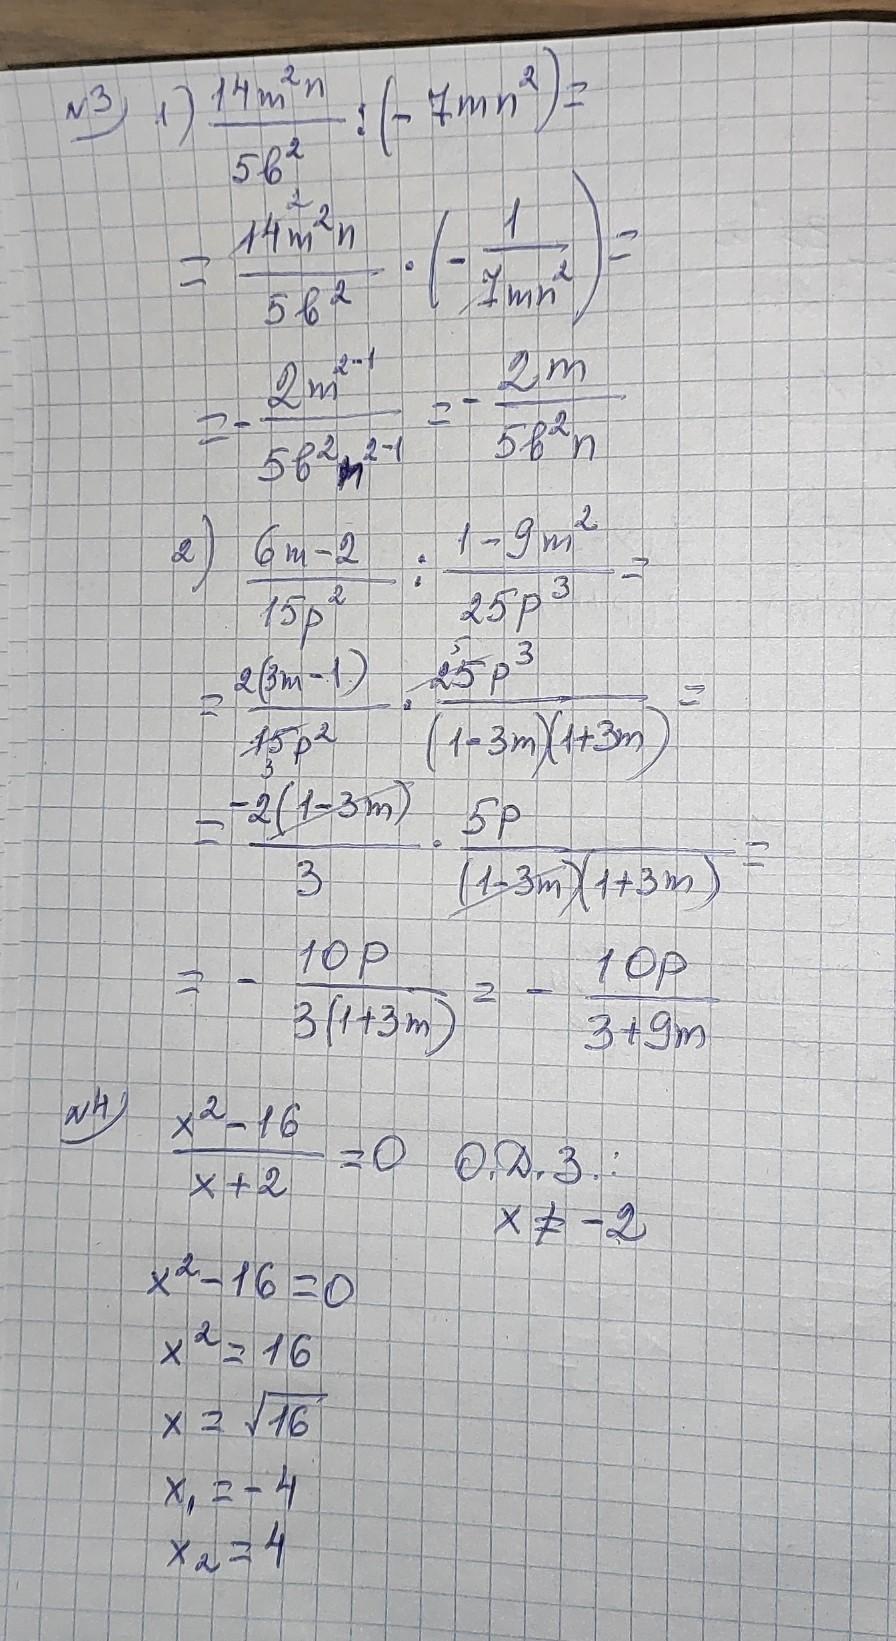 №3) 1) 14m²n / 5b² : (- 7mn²) =
= 14²m²n / 5b² · (- 1 / 7mn²) =
= - 2m²⁻¹ / 5b²n²⁻¹ = - 2m / 5b²n
2) 6m-2 / 15p² : 1-9m² / 25p³ =
= 2(3m-1) / 15p² 3 · 25⁵p³ / (1-3m)(1+3m) =
= -2(1-3m) / 3 · 5p / (1-3m)(1+3m) =
= - 10p / 3(1+3m) = - 10p / 3+9m
№4) x²-16 / x+2 = 0 О.Д.З.:
x ≠ -2
x²-16=0
x²=16
x = √16
x₁ = -4
x₂ = 4